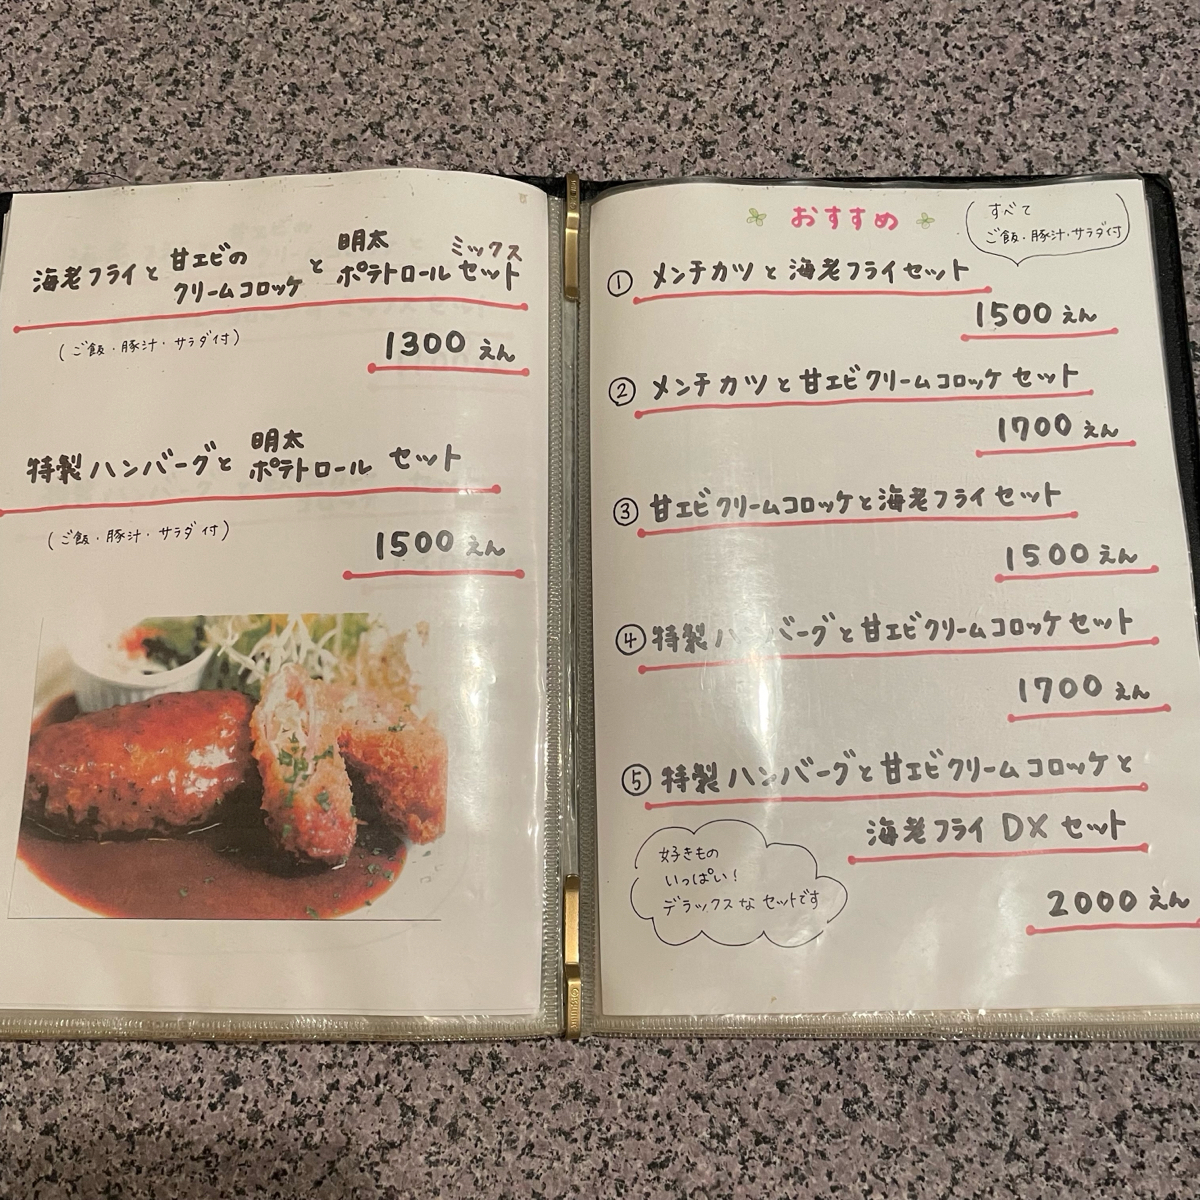 海老フライと甘エビのクリームコロッケと明太ポテトロールミックスセット
(ご飯・豚汁・サラダ付)
1300えん
特製ハンバーグと明太ポテトロールセット
(ご飯・豚汁・サラダ付)
1500えん
おすすめ
すべて
ご飯・豚汁・サラダ付
① メンチカツと海老フライセット
1500えん
② メンチカツと甘エビクリームコロッケセット
1700えん
③ 甘エビクリームコロッケと海老フライセット
1500えん
④ 特製ハンバーグと甘エビクリームコロッケセット
1700えん
⑤ 特製ハンバーグと甘エビクリームコロッケと
海老フライDXセット
好きもの
いっぱい!
デラックスなセットです
2000えん